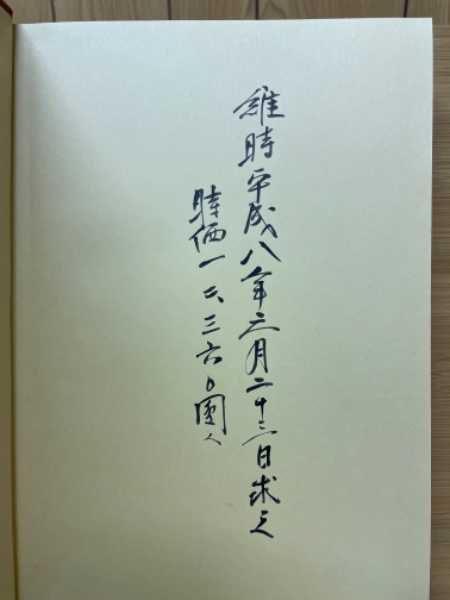 維時平成八年三月二十三日求之
時価一二三六〇圓